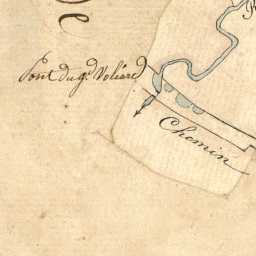 Pont du gd. Volière
Chemin